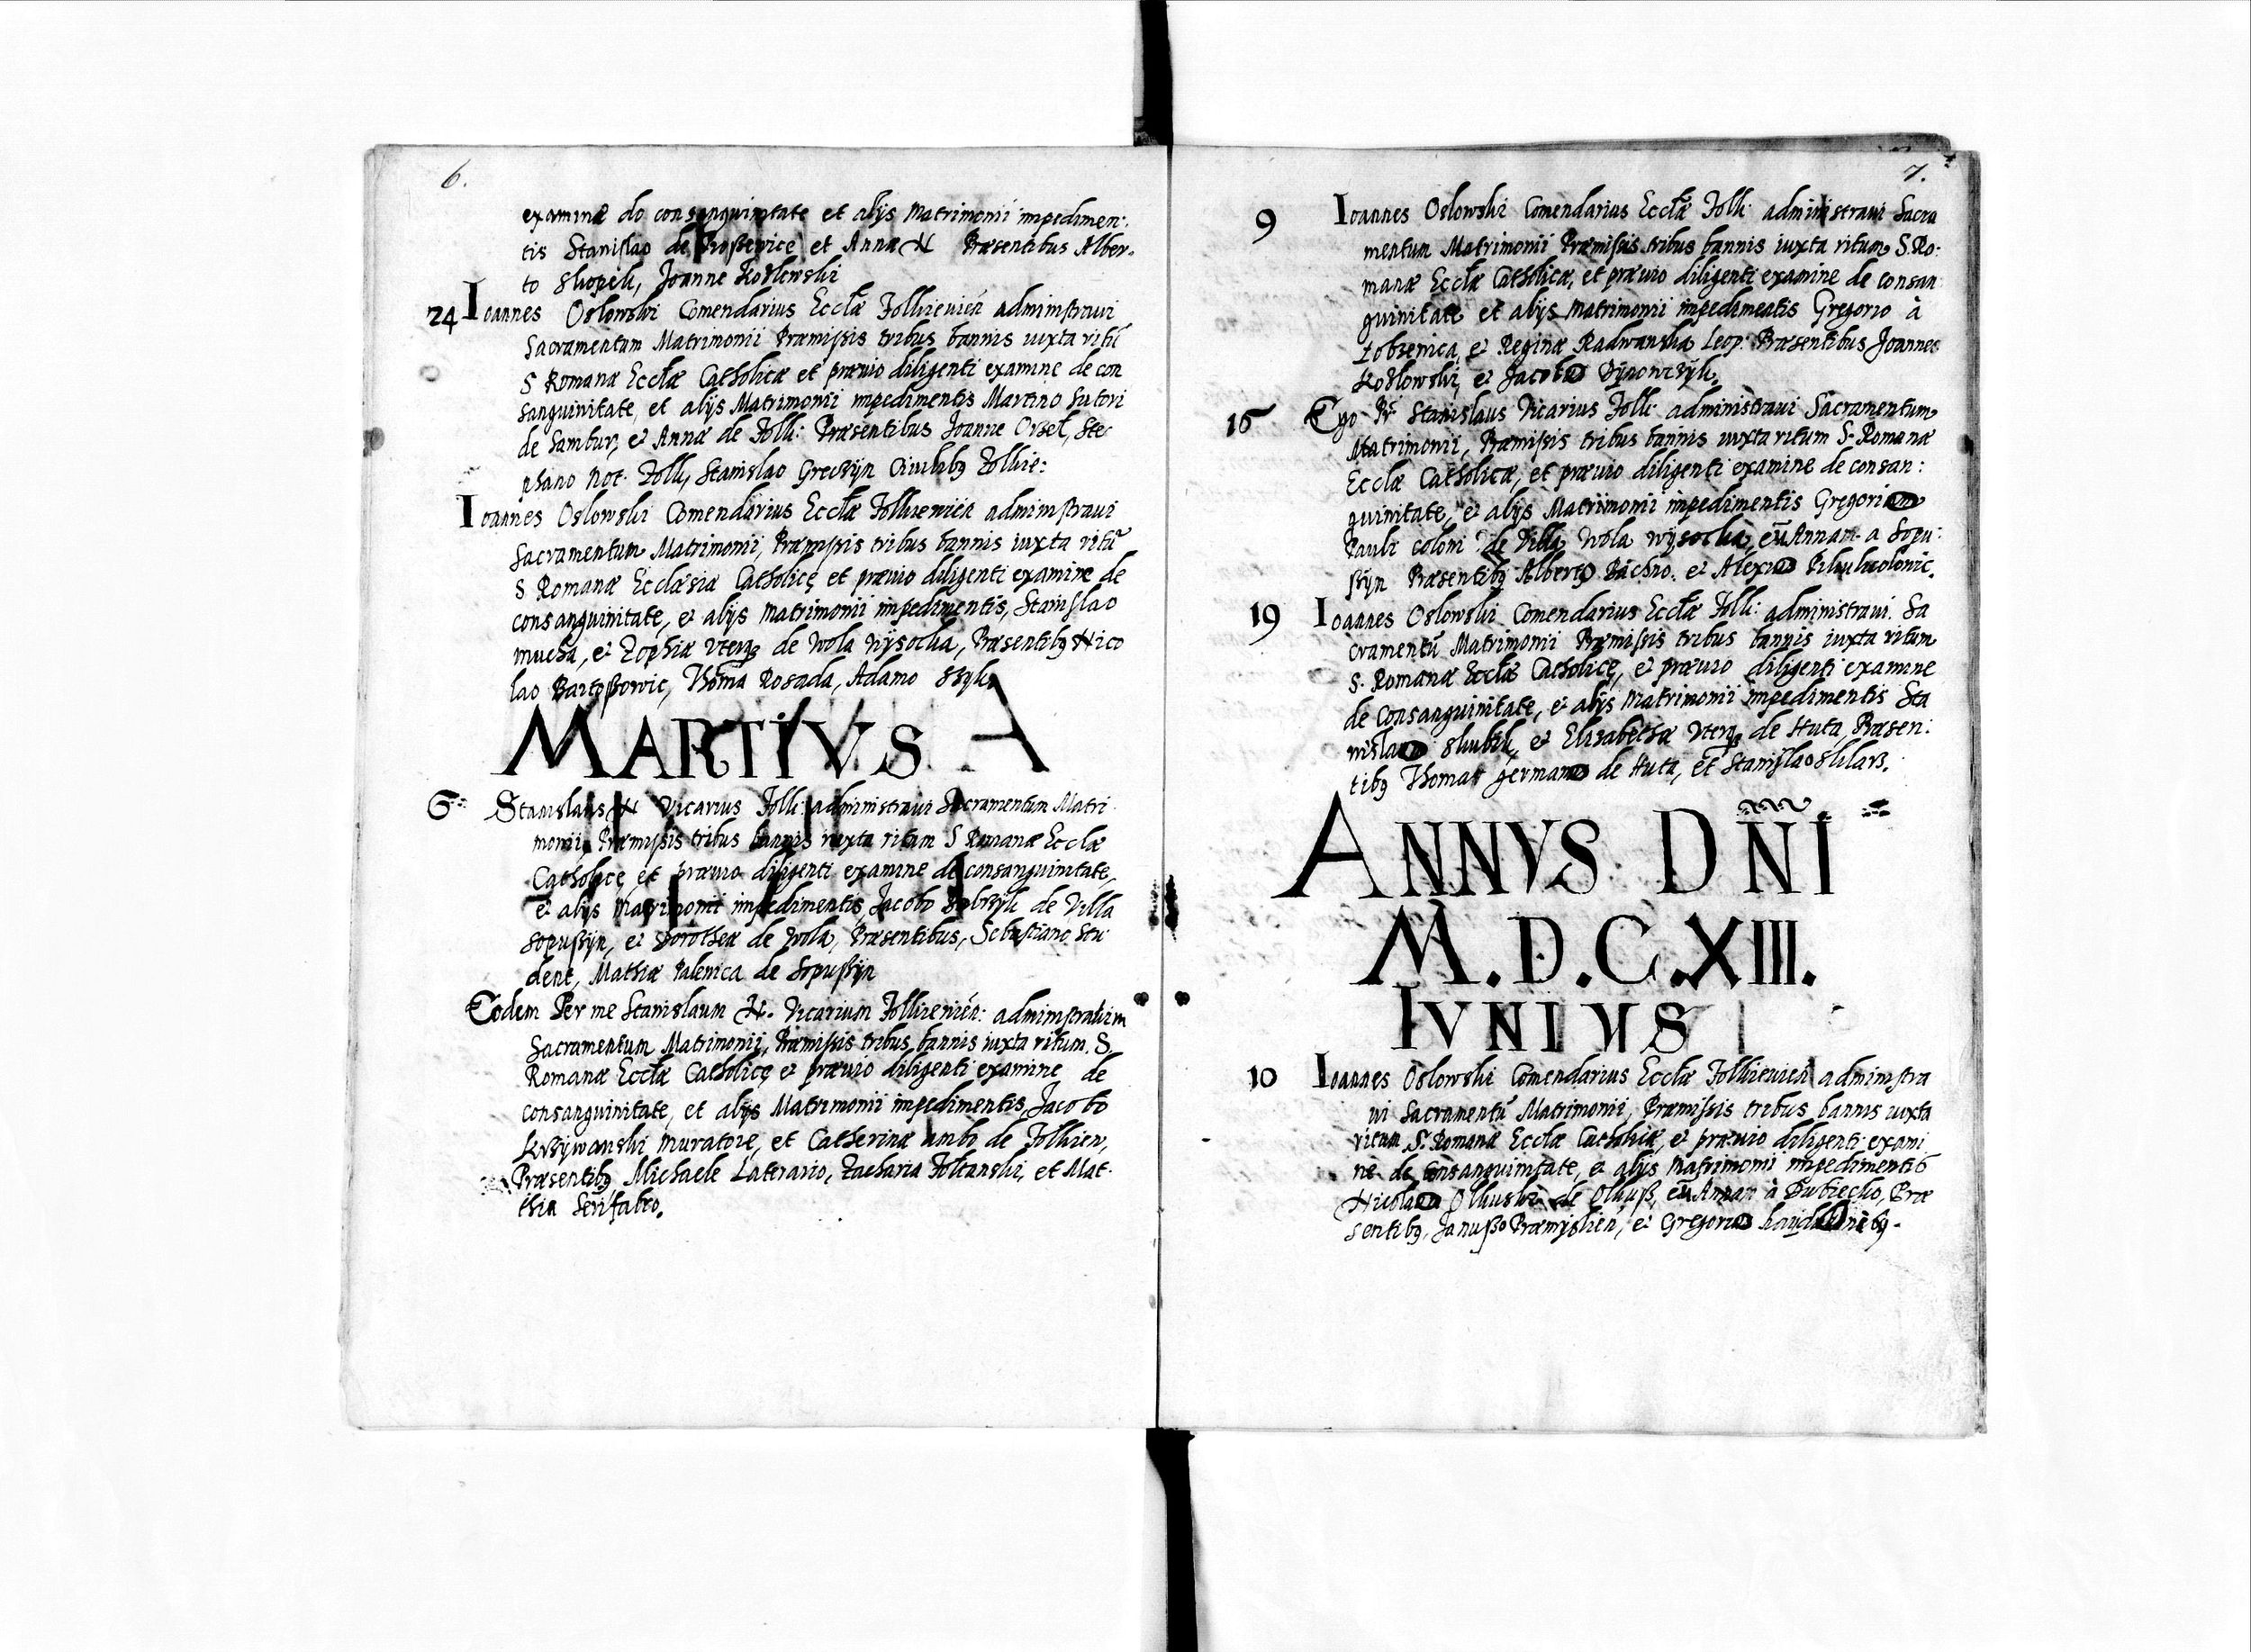 6.
examinæ do consanguinitate et alijs Matrimonii impedimen:
tis Stanislao de et Annæ N Præsentibus Alber-
to Skopek, Joanne Kozlowski
24 Ioannes Oslowski Comendarius Ecclæ Zolkievien administravi
Sacramentum Matrimonii Præmissis tribus bannis iuxta ritũ
S Romanæ Ecclæ Catholicæ et prævio diligenti examine de con
sanguinitate, et alijs Matrimonii impedimentis Martino Sutori
de Sambur, et Annæ de Zolk: Præsentibus Joanne Orzel, Ste
phano Not. Zolk, Stanislao Greczijn Civibibq Zolkie:
Ioannes Oslowski Comendarius Ecclæ Zolkievien administravi
Sacramentum Matrimonii, Præmissis tribus bannis iuxta ritũ
S Romanæ Ecclæsiæ Catholicę et prævio diligenti examine de
consanguinitate, et alijs Matrimonii impedimentis, Stanislao
mucha, et Zophiæ uterq de Wola Wijsocka, Præsentibq Nico
lao Bartoszowic, Thoma Rosada, Adamo
MARTIVS
6 Stanislaus N Vicarius Zolk: administravi Sacramentum Matri
monii, Præmissis tribus bannis iuxta ritum S Romanæ Ecclæ
Catholicę et prævio diligenti examine de consanguinitate,
et alijs Matrimonii impedimentis, Jacobo de Villa
Sopuszijn, et Dorotheæ de Wola, Præsentibus, Sebastiano Stu
dent, Mathiæ Palenica de Sopuszijn
Eodem Per me Stanislaum N. Vicarium Zolkievien: administratum
Sacramentum Matrimonii, Præmissis tribus bannis iuxta ritum. S.
Romanæ Ecclæ Catholicę et prævio diligenti examine de
consanguinitate, et alijs Matrimonii impedimentis, Jacobo
Krzijwanski muratore, et Catherinæ ambo de Zolkien,
Præsentibq Michaele Laterario, Zacharia Zoltanski, et Mat-
thia Serifabro.
7.
9 Ioannes Oslowski Comendarius Ecclæ Zolk: administravi Sacra
mentum Matrimonii Præmissis tribus bannis iuxta ritum S. Ro:
manæ Ecclæ Catholicæ, et prævio diligenti examine de consan
guinitate et alijs Matrimonii impedimentis Gregorio à
Lobzenica, et Reginæ Radwanska Leop: Præsentibus Joanne
Kozlowski, et Jacobo
16 Ego Pr Stanislaus Vicarius Zolk: administravi Sacramentum
Matrimonii, Præmissis tribus bannis iuxta ritum S. Romanæ
Ecclæ Catholicæ, et prævio diligenti examine de consan:
guinitate, et alijs Matrimonii impedimentis Gregorium
Pauli coloni de Villa Wola Wijsocka, cũ Annam a Sopu:
szijn Præsentibq Alberto Bachno. et Alexio
19 Ioannes Oslowski Comendarius Ecclæ Zolk: administravi. Sa
cramentũ Matrimonii Præmissis tribus bannis iuxta ritum
S. Romanæ Ecclæ Catholicę, et prævio diligenti examine
de Consanguinitate, et alijs Matrimonii impedimentis Sta
nislao Skubik, et Elizabethæ uterq de Huta, Præsen:
tibq Thomas germano de Huta, et Stanislao
ANNVS DÑI
M.D.C.XIII.
IVNIVS
10 Ioannes Oslowski Comendarius Ecclæ Zolkievien administra
vi Sacramentũ Matrimonii, Præmissis tribus bannis iuxta
ritum S. Romanæ Ecclæ Catholicæ, et prævio diligenti exami
ne de Consanguinitate, et alijs Matrimonii impedimentis
Nicolao Olkuski de Olkusz, cũ Annam à Dubiecko, Præ
sentibq, Januszo Præmijslien, et Gregorio